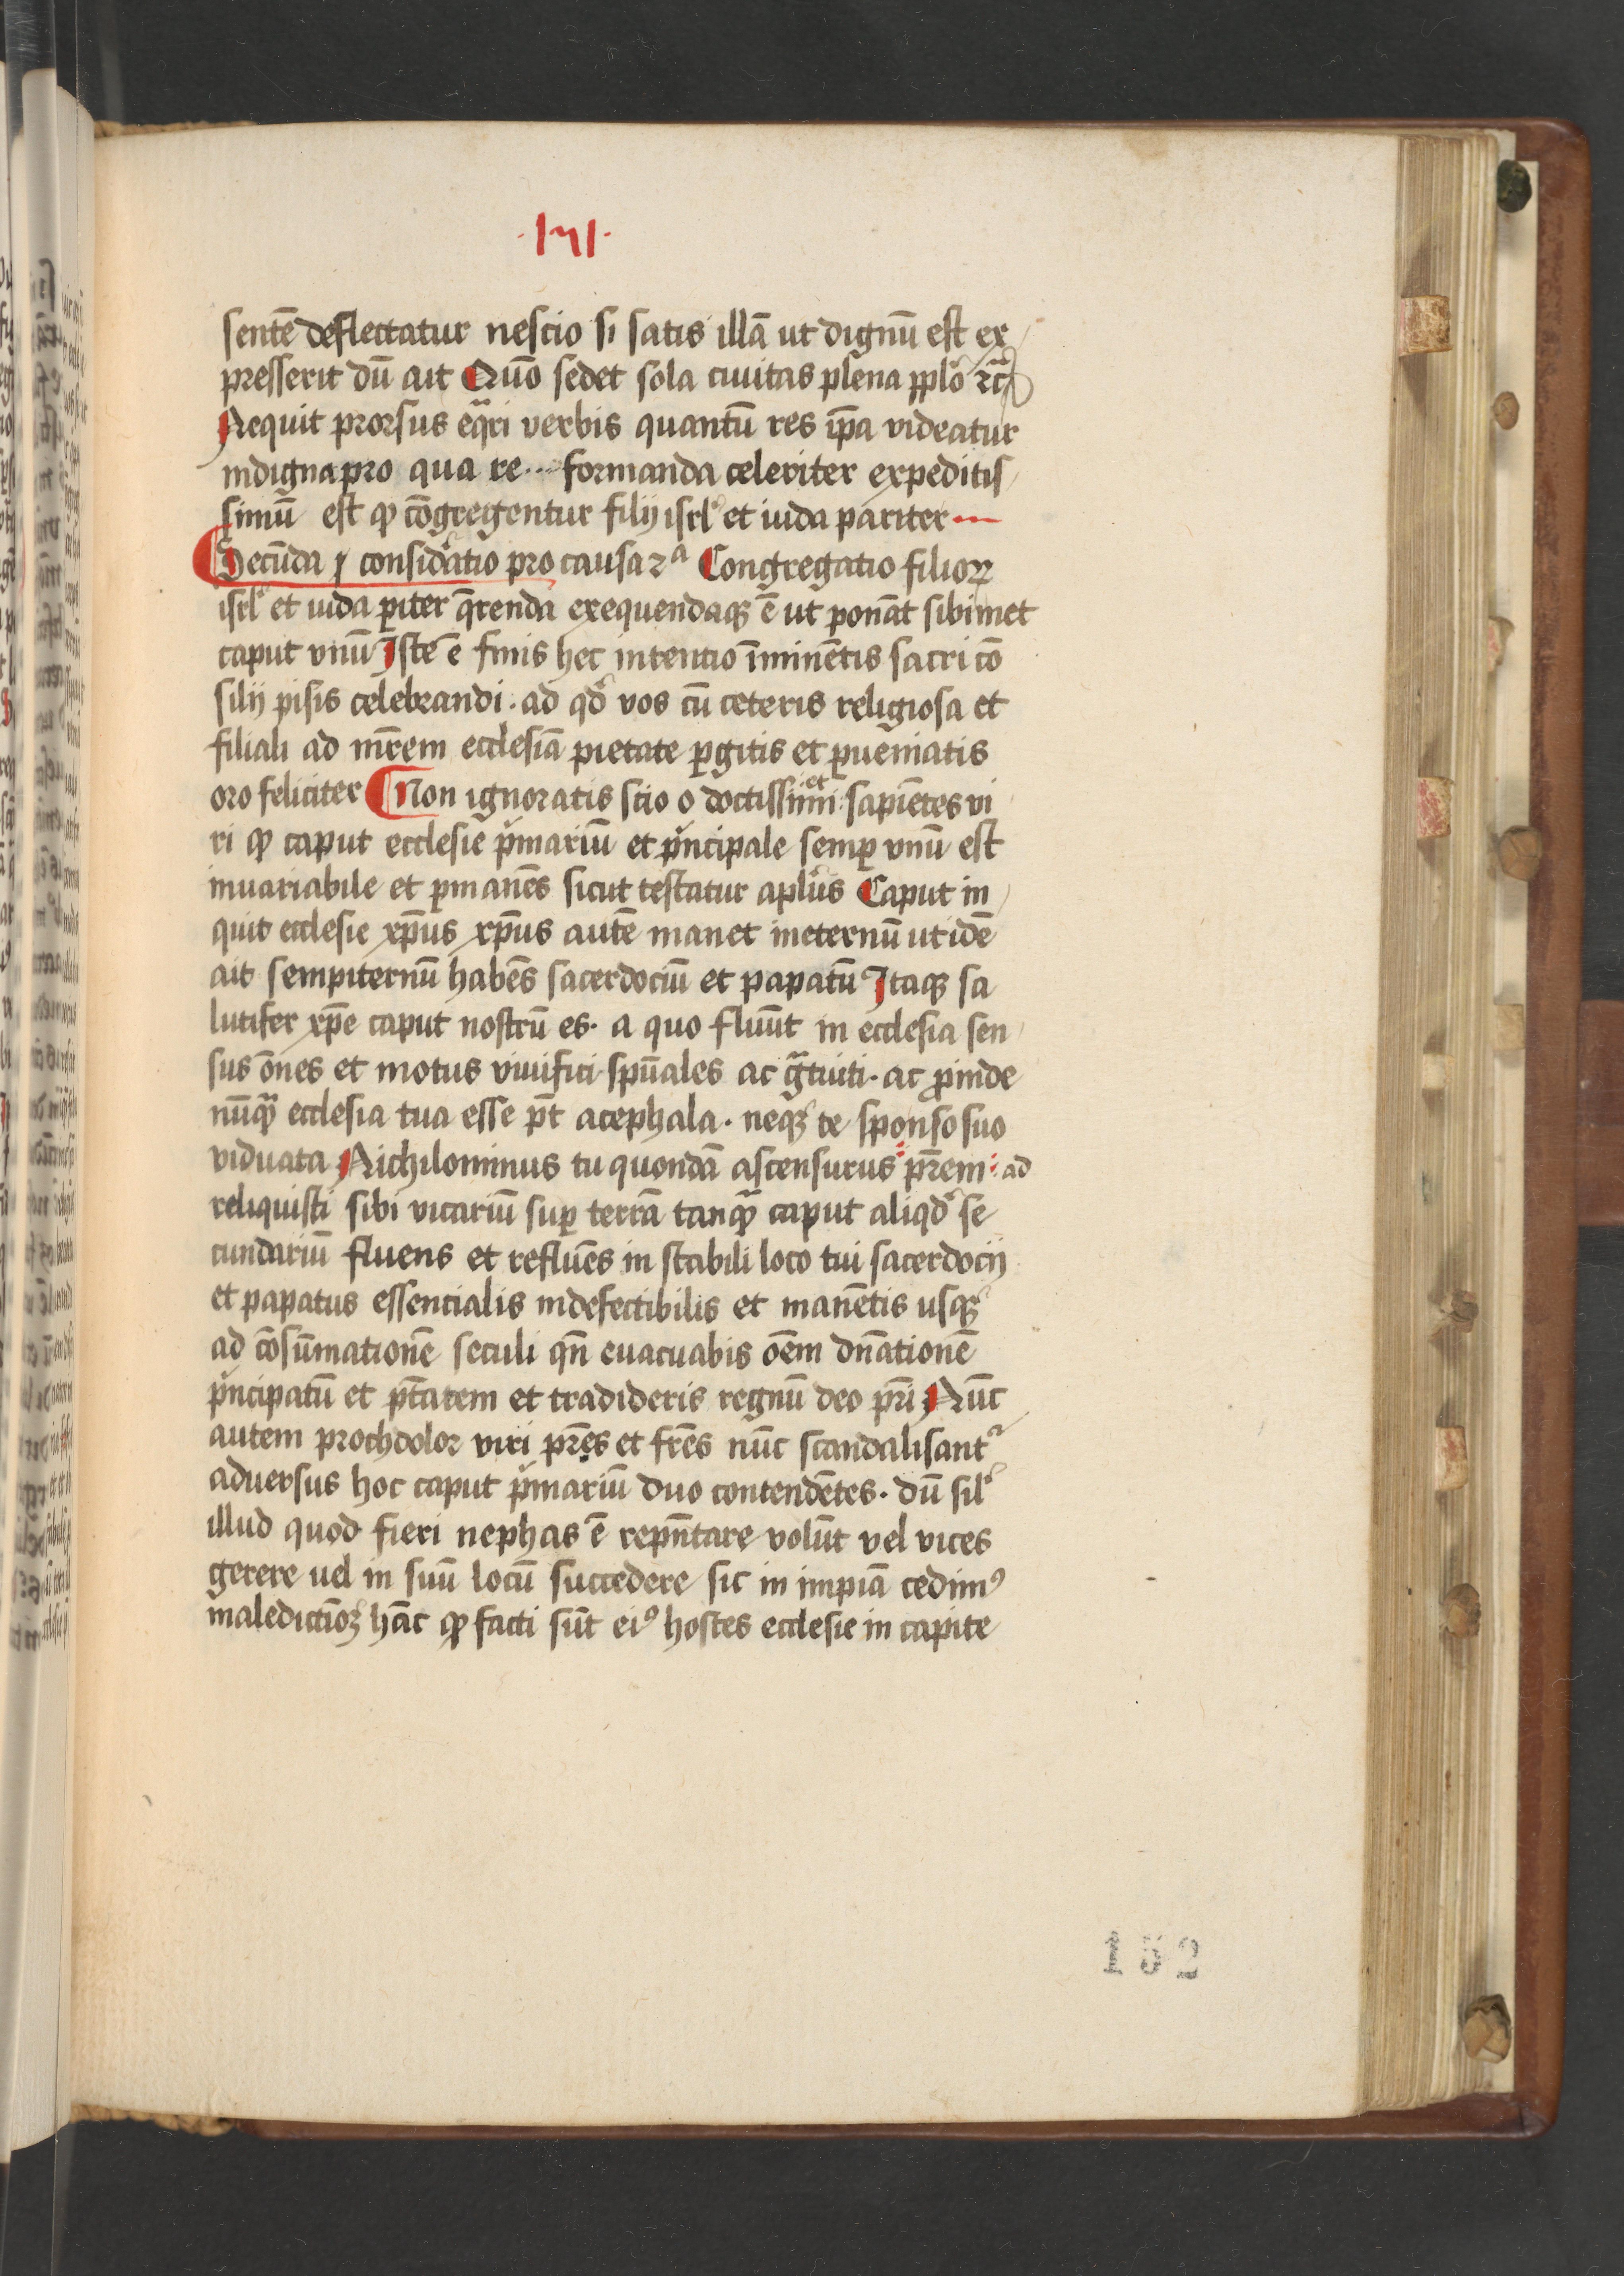 sentē deflectatur nescio si satis illā ut dignū est ex
presserit dū ait Quō sedet sola ciuitas plena pplō ⁊cͣ
Nequit prorsus eqͣri verbis quantū res ip̄a videatur
indigna pro qua re... formanda celeriter expeditis
simū est ꝙ cōgregentur filij isrl̕ et iuda pariter
Secūda ⁊ consid̕atio pro causa 2ᵃ Congregatio filioꝝ
isrl̕ et iuda ꝑiter q̄renda exequendaqꝫ ē ut ponāt sibimet
caput vnū Iste ē finis hec intentio īminētis sacri cō
silij pisis celebrandi · ad qd̕ vos cū ceteris religiosa et
filiali ad mr̄em ecclesiā pietate ꝑgitis et ꝑueniatis
oro feliciter Non ignoratis scio o doctissimi et sapiētes vi
ri ꝙ caput ecclesie pͥmariū et pͥncipale semꝑ vnū est
inuariabile et ꝑmanēs sicut testatur apl̕us Caput in
quit ecclesie xp̄us xp̄us autē manet ineternū ut idē
ait sempiternū habēs sacerdociū et papatū Itaqꝫ sa
lutifer xp̄e caput nostrū es · a quo fluūt in ecclesia sen
sus ōnes et motus viuifici spūales ac gͣtuiti · ac ꝓinde
nūqͣ ecclesia tua esse pt̄ acephala · neqꝫ te sponso suo
viduata Nichilominus tu quondā ascensurus pr̄em ad
reliquisti sibi vicariū suꝑ terrā tanqͣ caput aliqd̕ se
cundariū fluens et refluēs in stabili loco tui sacerdocij
et papatus essencialis indefectibilis et manētis usqꝫ
ad cōsūmationē seculi qn̄ euacuabis oēm dn̄ationē
pͥncipatū et pt̄atem et tradideris regnū deo pr̄i Nūc
autem prochdolor viri pr̄es et fr̄es nūc scandalisantͬ
aduersus hoc caput pͥmariū duo contendētes · dū sil̕
illud quod fieri nephas ē repn̄tare volūt vel vices
gerere uel in suū locū succedere sic in impiā cedimꝰ
maledictiōꝫ hāc ꝙ facti sūt eiꝰ hostes ecclesie in capite
152